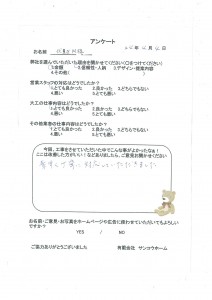 アンケート
お名前
弊社を選んでいただいた理由を聞かせてください(○をつけてください)
1.金額 2.信頼性・人柄 3.デザイン・提案内容
4.その他( )
営業スタッフの対応はどうでしたか?
1.とても良かった 2.良かった 3.どちらでもない
4.悪い 5.とても悪い
大工の仕事内容はどうでしたか?
1.とても良かった 2.良かった 3.どちらでもない
4.悪い 5.とても悪い
その他業者の仕事内容はどうでしたか?
1.とても良かった 2.良かった 3.どちらでもない
4.悪い 5.とても悪い
今回、工事をさせていただいた中でこんな仕事がよかったなぁ!
ここは改善した方がいい!などありましたら、ご意見お聞かせください
対応していただきました
お名前・ご意見・お写真をホームページや広告に使わせていただいてもよろしい
ですか?
YES / NO
ご協力ありがとうございました 有限会社 サンコウホーム